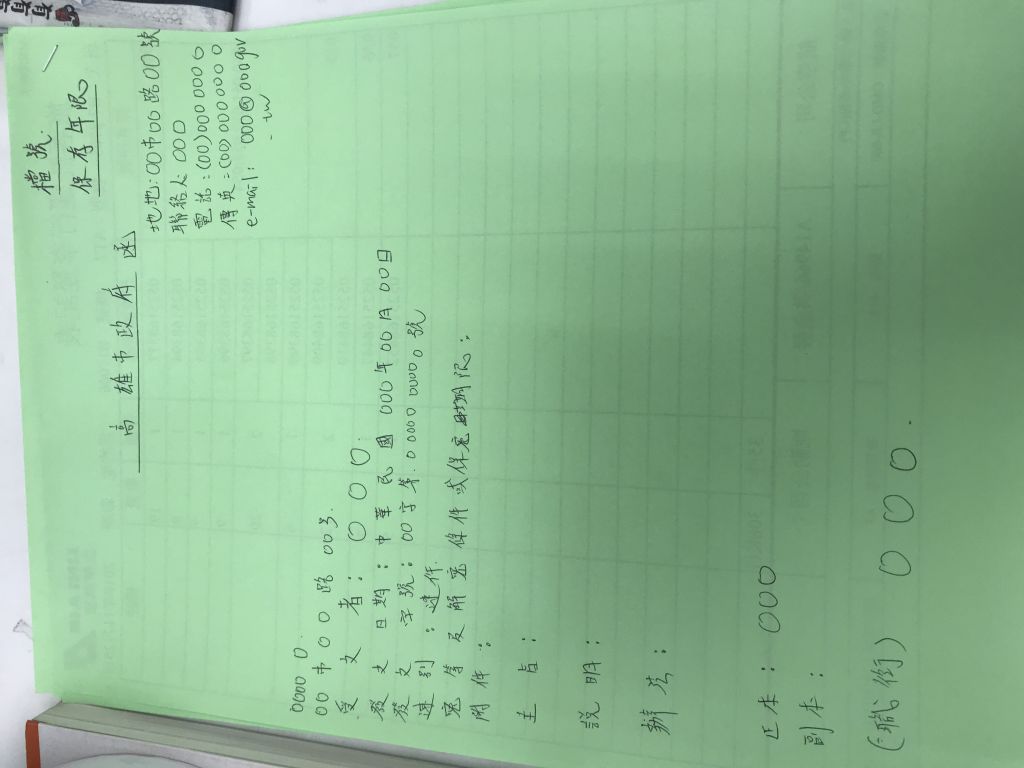 檔號
保存年限
高雄市政府 函
地址:00市00路00號
聯絡人:000
電話:(00)0000000
傳真:(00)0000000
e-mail: 000@000gov
.tw
00000
00市00路00号
受文者:000
發文日期:中華民國000年00月00日
發文字號:00字第00000000號
速別:速件
密等及解密條件或保密期限:
附件:
主旨:
說明:
辦法:
正本:000
副本:
(職銜) 000.